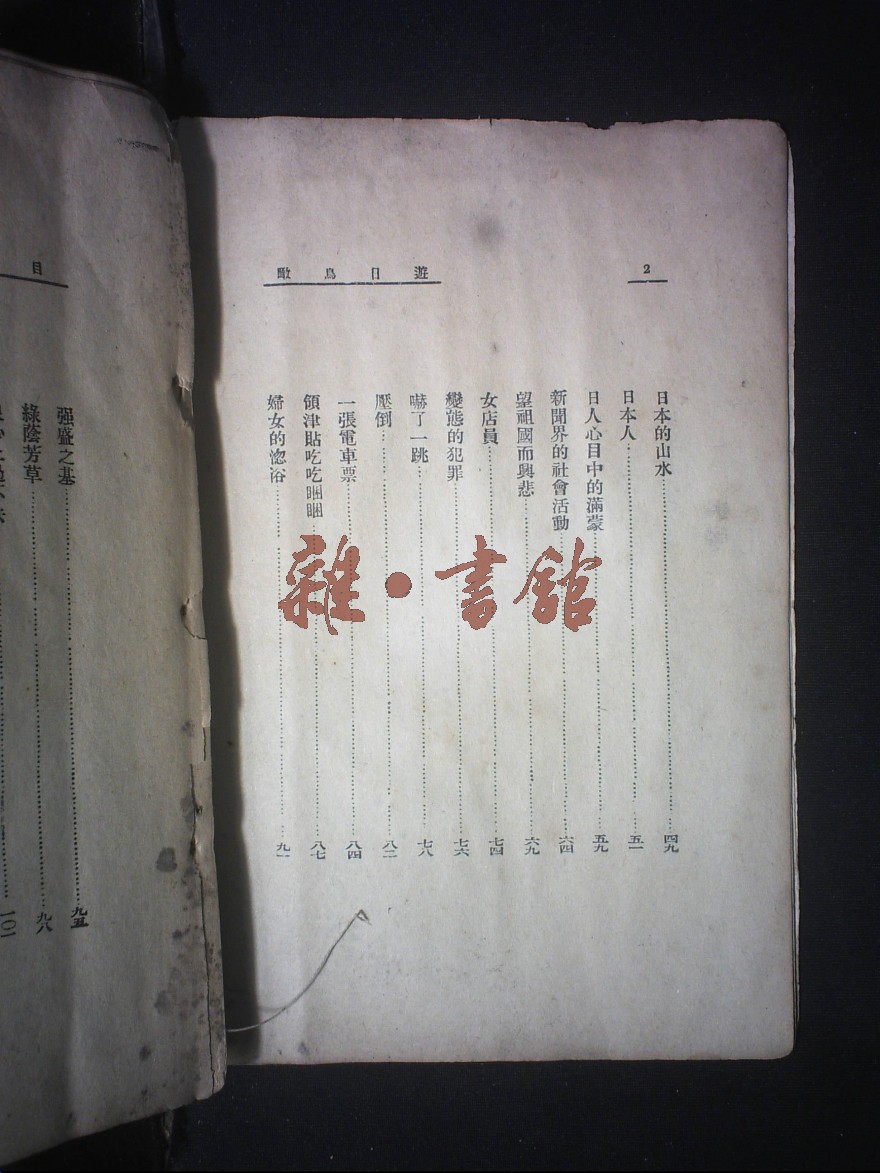 2
遊日鳥瞰
日本的山水 四九
日本人 五一
日人心目中的滿蒙 五九
新聞界的社會活動 六四
望祖國而興悲 六九
女店員 七四
變態的犯罪 七六
嚇了一跳 七八
壓倒 八二
一張電車票 八四
領津貼吃吃睏睏 八七
婦女的惚浴 九一
目
强盛之基 九五
綠蔭芳草 九八
一〇一
雜·書館